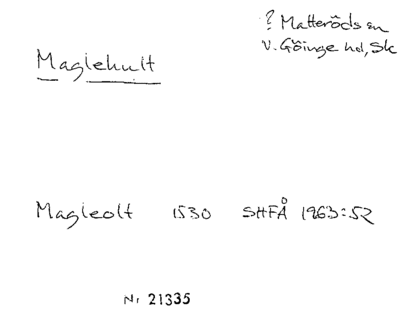 ? Matteröds sn
V. Göinge hd, Sk
Maglehult
Magleolt 1530 SHFÅ 1963:52
Nr 21335